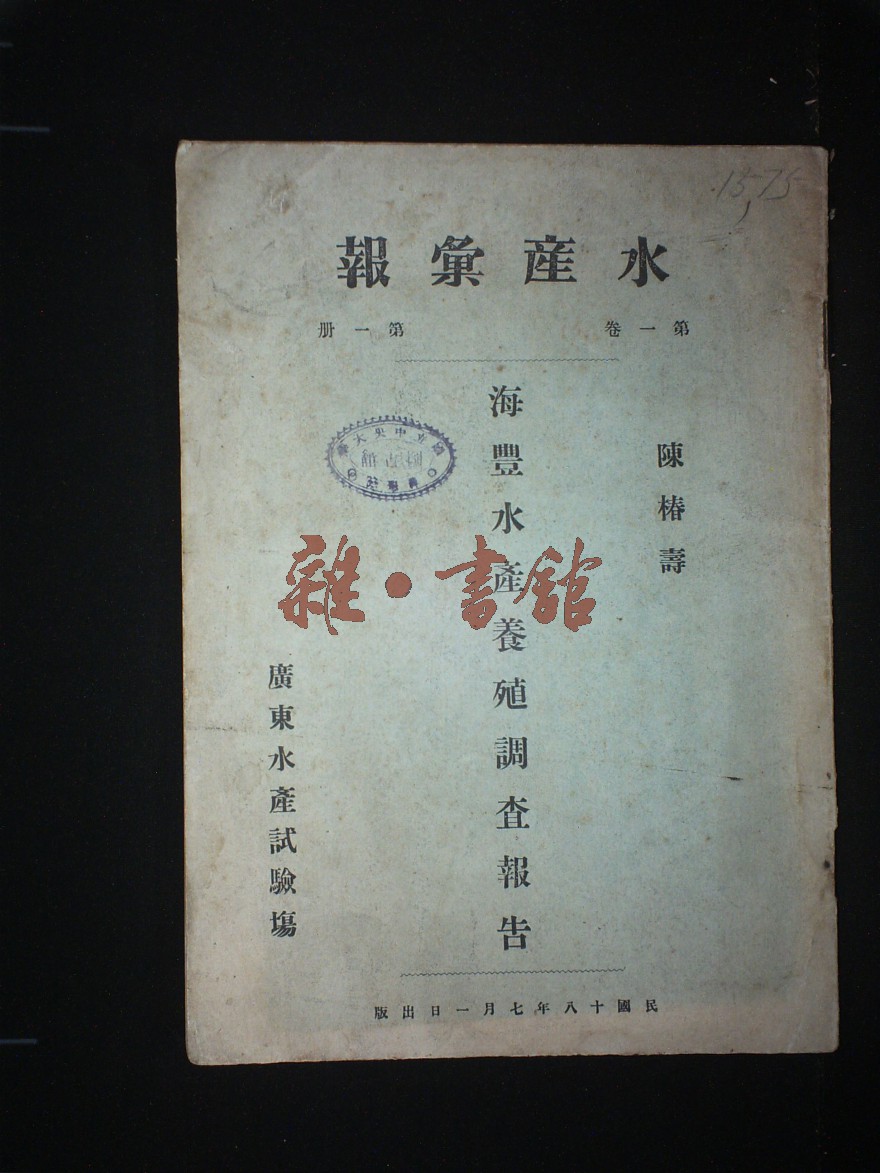 15,75
水產彙報
第一卷　第一册
陳椿壽
海豐水產養殖調查報告
廣東水產試驗塲
民國十八年七月一日出版
國立中央大學
雜·書館